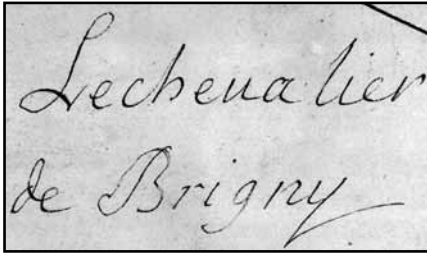 Lecheualier
de Brigny